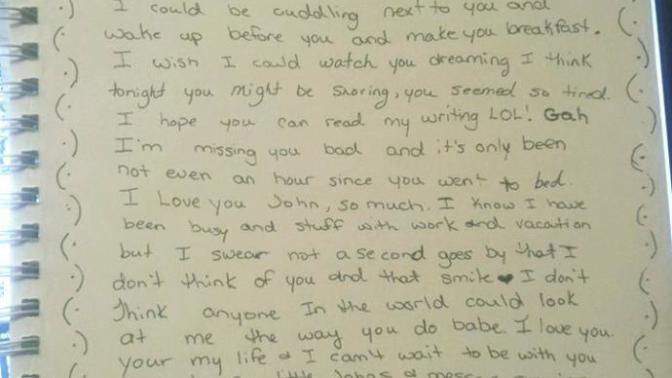 I could be cuddling next to you and
wake up before you and make you breakfast.
I wish I could watch you dreaming I think
tonight you might be snoring, you seemed so tired.
I hope you can read my writing LOL! Gah
I'm missing you bad and it's only been
not even an hour since you went to bed.
I Love you John, so much. I know I have
been busy and stuff with work and vacation
but I swear not a second goes by that I
don't think of you and that smile ♥ I don't
Think anyone In the world could look
at me the way you do babe. I love you.
your my life & I can't wait to be with you
little